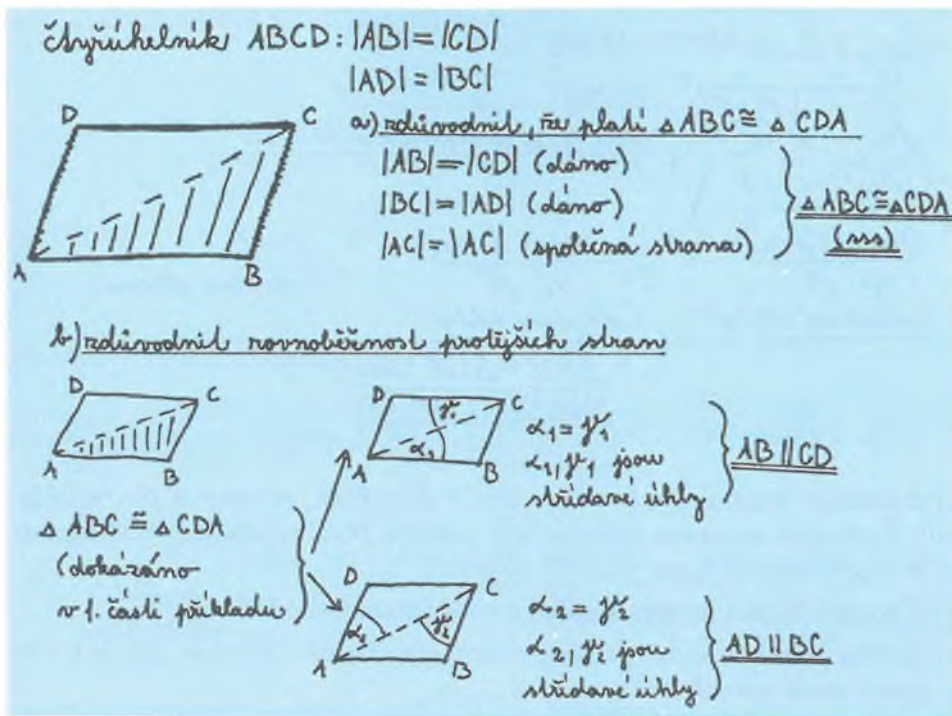 čtyřúhelník ABCD: |AB| = |CD|
|AD| = |BC|
D C
A B
a) zdůvodnit, že platí △ ABC ≅ △ CDA
|AB| = |CD| (dáno)
|BC| = |AD| (dáno)
|AC| = |AC| (společná strana)
△ ABC ≅ △ CDA
(sss)
b) zdůvodnit rovnoběžnost protějších stran
D C
A B
△ ABC ≅ △ CDA
(dokázáno
v 1. části příkladu)
D C
γ₁
α₁
A B
α₁ = γ₁
α₁, γ₁ jsou
střídavé úhly
AB || CD
D C
α₂ γ₂
A B
α₂ = γ₂
α₂, γ₂ jsou
střídavé úhly
AD || BC